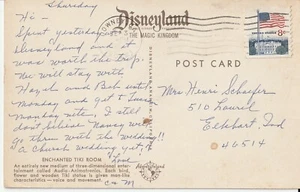 Thursday
Hi -
Spent yesterday at
Disneyland and it
was worth the trip.
We will stay with
and Bob until
Monday and get to
Monday nite, I still
don't believe Nancy will
go thru with the wedding!!
a Church wedding yet,
Love
C & M
Disneyland
THE MAGIC KINGDOM
8¢
POST CARD
Mrs Henri Schaefer
510 Laurel
Elkhart, Ind
46514
ENCHANTED TIKI ROOM
An entirely new medium of three-dimensional entertainment
called Audio-Animatronics. Each bird,
flower and wooden Tiki statue is given man-like
characteristics — voice and movement.